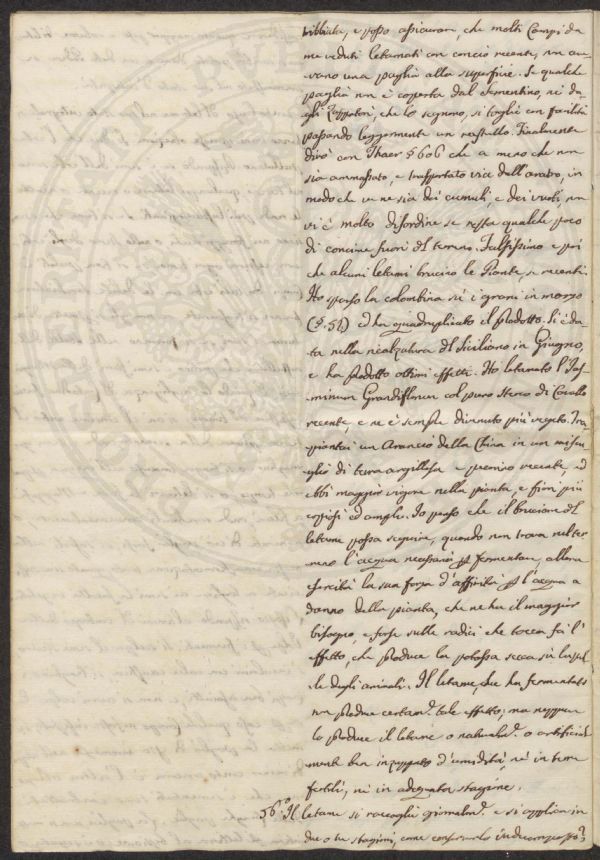 e posso assicurare, che molti Campi da
me veduti letamati con concio recente, non
vano una paglia alla superficie. Se qualche
paglia non è coperta dal Sementino, nè da
gli Zappatori, che lo seguono, si toglie con facilità
passando leggermente un rastrello. Finalmente
dirò con Thaer § 606 che a meno che non
sia ammassato, e trasportato vice dell'aratro, in
modo che ve ne sia dei cumuli e dei vuoti, non
vi è molto disordine se resta qualche poco
di concime fuori del terreno. Falsissimo è poi
che alcuni letami brucino le Piante, se recenti.
Ho sparso la colombina su i grani in marzo
(§. 52) ed ha quadruplicato il prodotto. Si è da
ta nella rincalzatura del Siciliano in Giugno,
e ha prodotto ottimi effetti. Ho letamato l'Jas
minum Grandiflorum col puro sterco di Cavallo
recente, e ne è sempre divenuto più vegeto. Tra
piantai un Arancio della China in un miscu
glio di terra argillosa e pecorino recente, ed
ebbi maggior vigore nella pianta, e fiori più
copiosi ed ampli. Io penso che il bruciare del
letame possa seguire, quando non trova nel ter
reno l'acqua necessaria p fermentare, allora
esercita la sua forza d'affinità p l'acqua a
danno della pianta, che ne ha il maggior
bisogno, e forse sulle radici che tocca fa l'
effetto, che produce la potassa secca sù la pel
le degli animali. Il letame, che ha fermentato
non produce certam.e tale effetto; ma neppur
lo produce il letame o naturalm.e o artificial
mente ben inzuppato d'umidità, nè in terre
fertili, nè in adeguata stagione.
56.o Il letame si raccoglie giornalm.e e si applica in
due o tre stagioni, come conservarlo indecomposto?